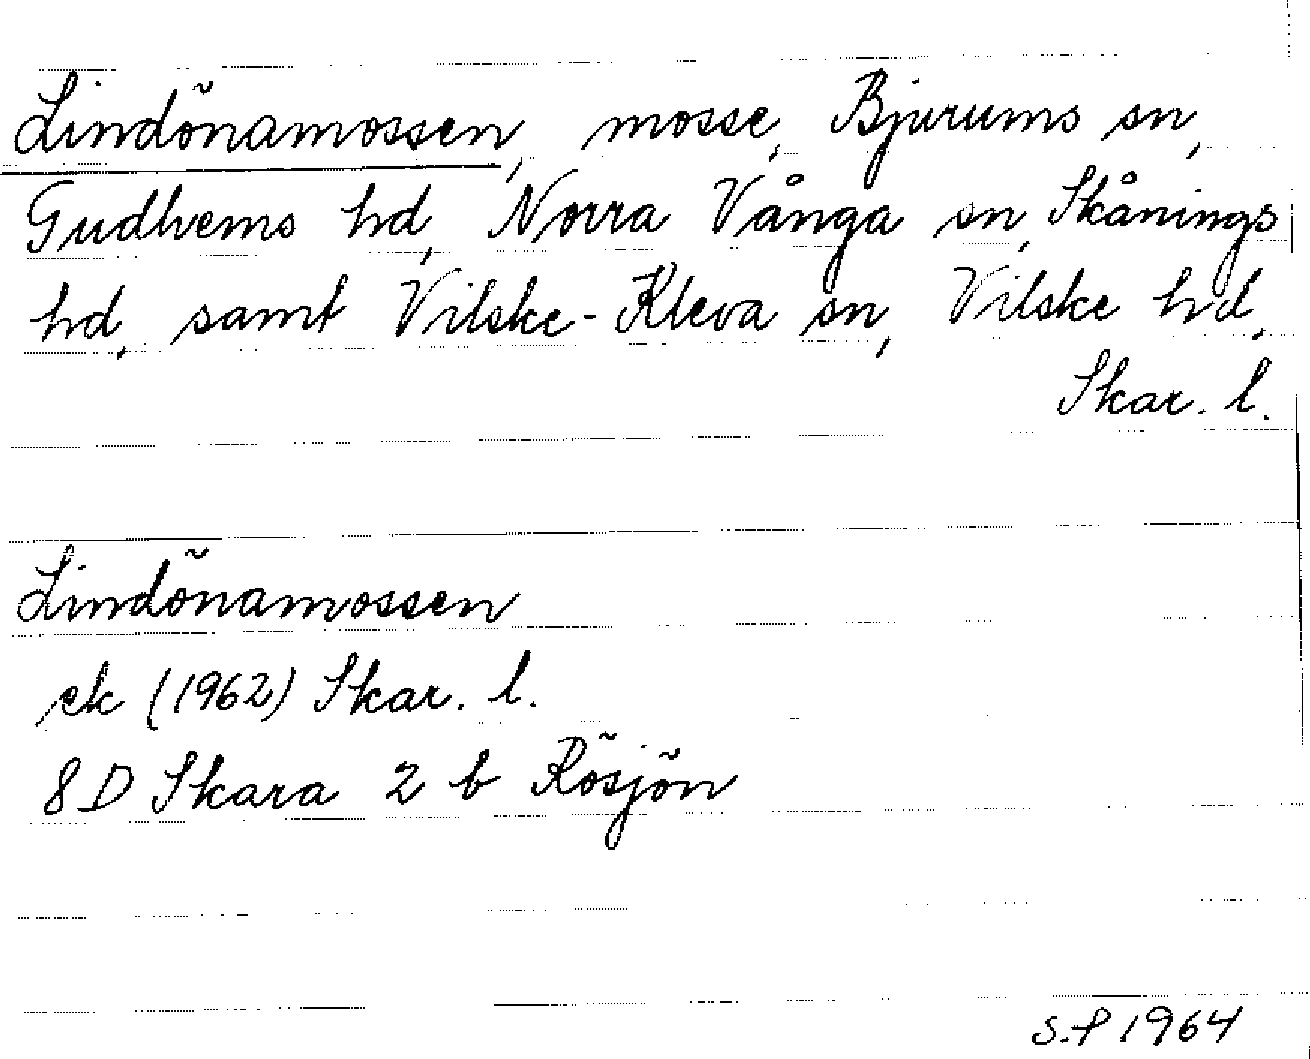 Lindönamossen, mosse, Bjurums sn,
Gudhems hd, Norra Vånga sn, Skånings
hd, samt Vilske-Kleva sn, Vilske hd,
Skar. l.
Lindönamossen
ek (1962) Skar. l.
8 D Skara 2 b Rösjön
S.P 1964